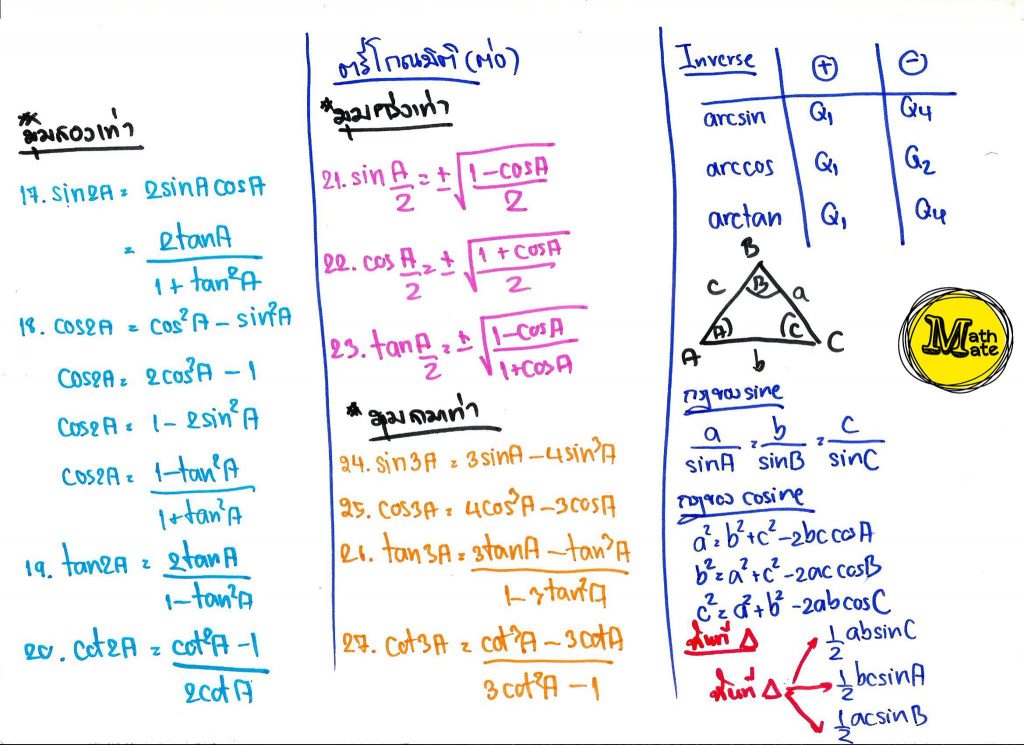 *มุมสองเท่า
17. sin2A = 2sinAcosA
= 2tanA / 1 + tan²A
18. cos2A = cos²A - sin²A
cos2A = 2cos²A - 1
cos2A = 1 - 2sin²A
cos2A = 1-tan²A / 1+tan²A
19. tan2A = 2tanA / 1-tan²A
20. cot2A = cot²A - 1 / 2cotA
ตรีโกณมิติ (ต่อ)
*มุมครึ่งเท่า
21. sin A/2 = ± √(1-cosA / 2)
22. cos A/2 = ± √(1+cosA / 2)
23. tan A/2 = ± √(1-cosA / 1+cosA)
* มุมสามเท่า
24. sin3A = 3sinA - 4sin³A
25. cos3A = 4cos³A - 3cosA
26. tan3A = 3tanA - tan³A / 1-3tan²A
27. cot3A = cot³A - 3cotA / 3cot²A - 1
Inverse + -
arcsin Q1 Q4
arccos Q1 Q2
arctan Q1 Q4
B
c B a
A A C C
b
Math Mate
กฎของ sine
a / sinA = b / sinB = c / sinC
กฎของ cosine
a² = b² + c² - 2bc cosA
b² = a² + c² - 2ac cosB
c² = a² + b² - 2ab cosC
พื้นที่ Δ
½ absinC
พื้นที่ Δ = ½ bcsinA
½ acsinB